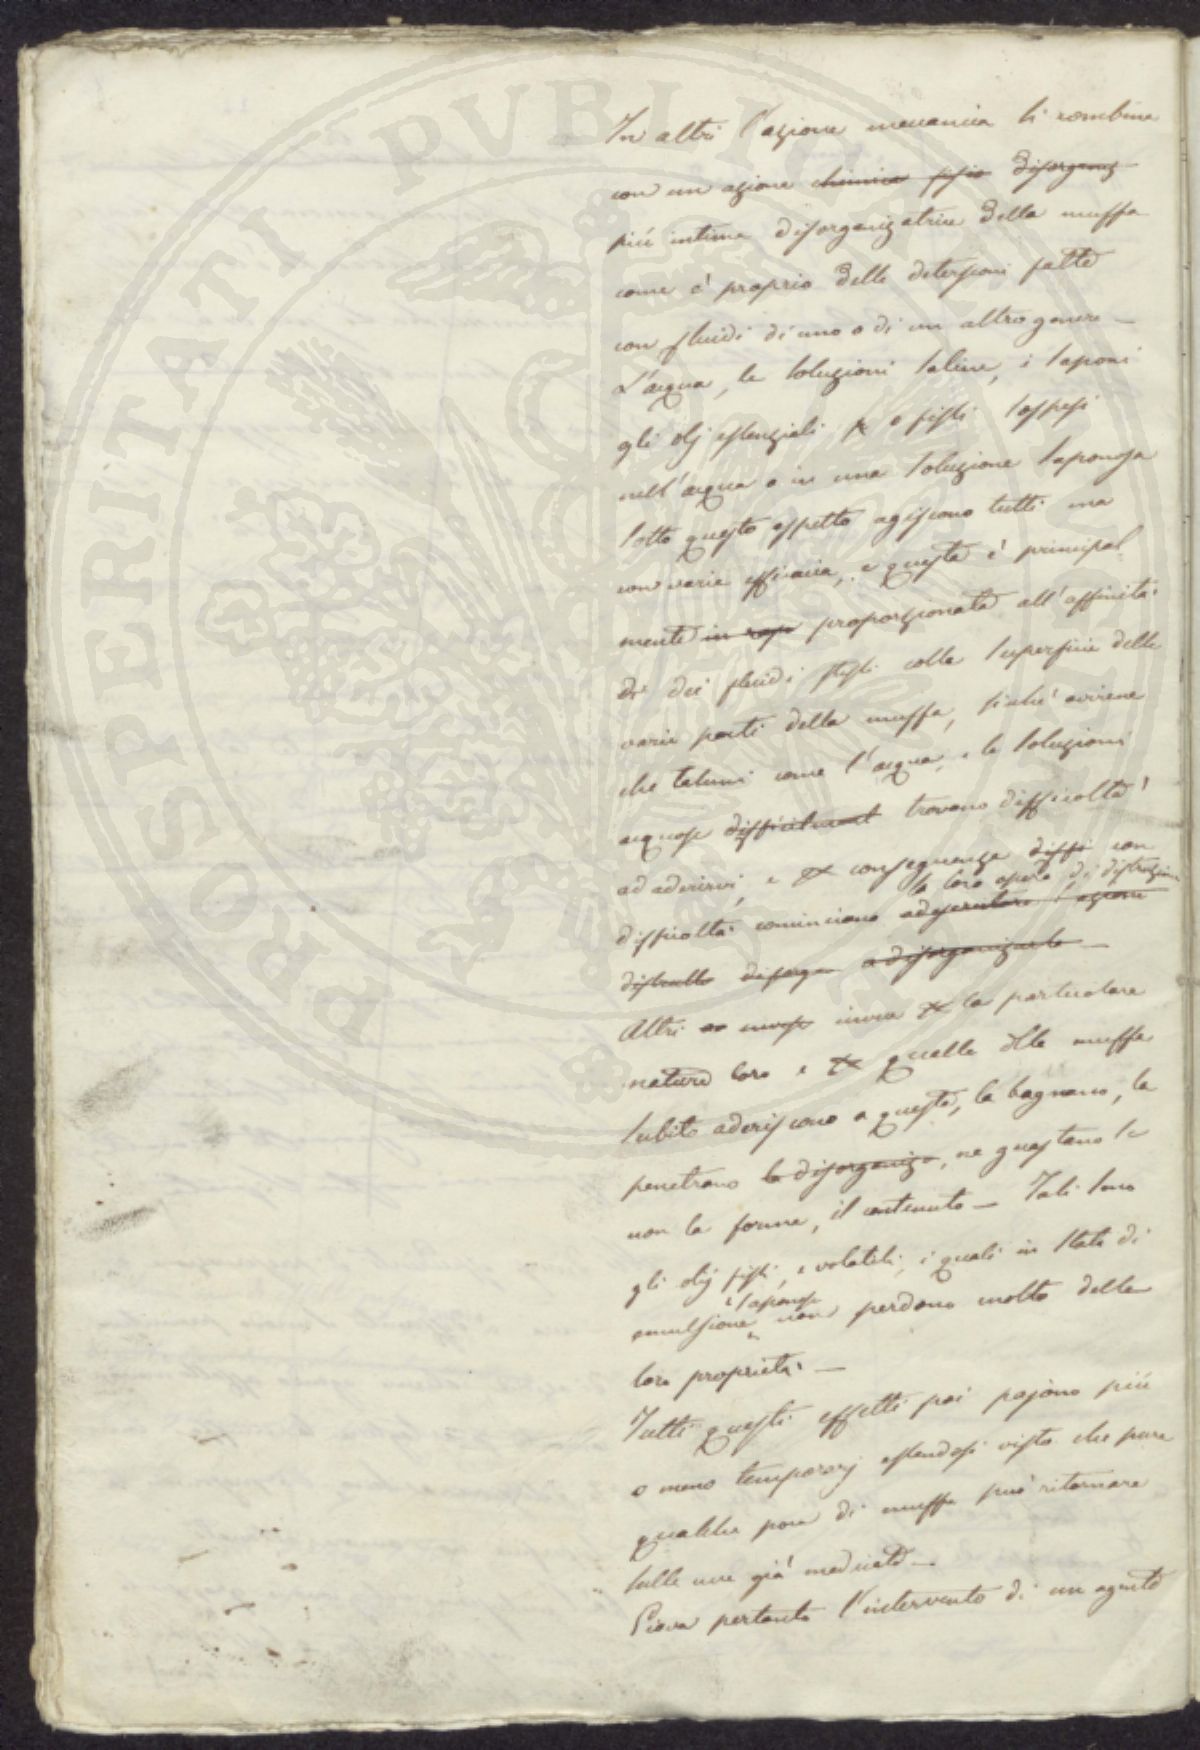 In altri l'azione meccanica si combina
con un azione chimica fisio disorganiz
più intima disorganizatrice della muffa
come è proprio delle detersioni fatte
con fluidi di uno o di un altro genere —
L'acqua, le soluzioni saline, i saponi
gli olj essenziali o fissi sospesi
nell'acqua o in una soluzione saponosa
sotto questo aspetto agiscono tutti ma
con varia efficacia, e questa è principal
mente in rag proporzionata all'affinità
di dei fluidi stessi colla superficie delle
varie parti della muffa, sicché avviene
che taluni come l'acqua, e le soluzioni
acquose difficilment trovano difficoltà
ad aderirvi, e conseguenza diffi con
la loro opera di distruzione
difficoltà cominciano ad esercitare l'azione
distrutto a disorganizarla —
Altri invece la particolare
natura loro e quella della muffa
subito aderiscono a questa, la bagnano, la
penetrano la disorganiza, ne guastano se
non la forma, il contenuto — Tali sono
gli olij fissi, e volatili, i quali in stato di
e saponosi
emulsione non perdono molto della
loro proprietà —
Tutti questi effetti poi pajono più
o meno temporarj essendosi visto che pure
qualche poco di muffa può ritornare
sulle uve già medicate —
Giova pertanto l'intervento di un agente
PROSPERITATI PVBLICAE AVGENDAE